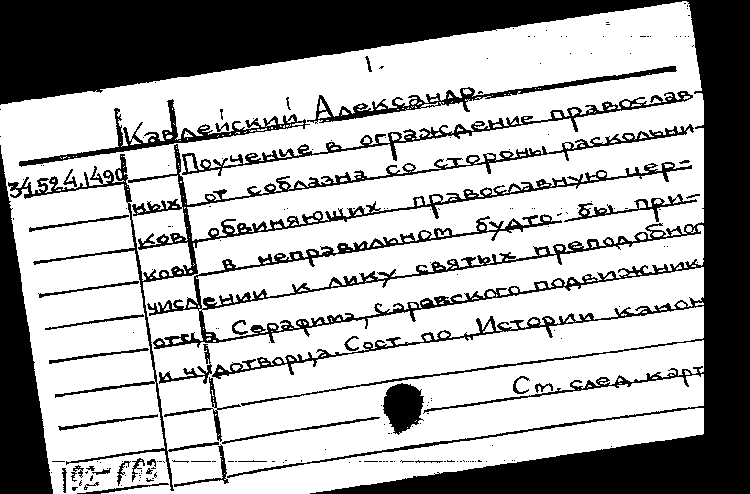 1.
Кавлейский, Александр.
34.52.4.1490
Поучение в ограждение православ-
ных от соблазна со стороны раскольни-
ков, обвиняющих православную цер=
ковь в неправильном будто бы при=
числении к лику святых преподобног
отца Серафима, саравского подвижника
и чудотворца. Сост. по „Истории канон
См. след. карт